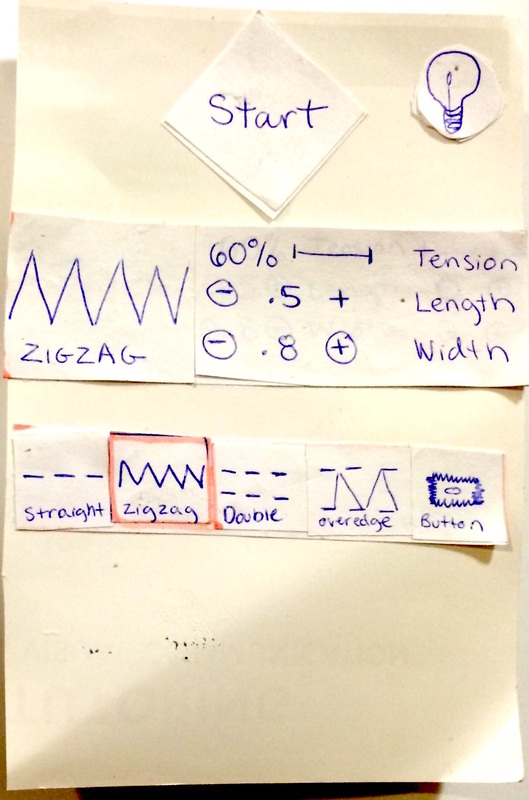 Start
ZIGZAG
60% Tension
- .5 + Length
- .8 + Width
Straight
Zigzag
Double
overedge
Button